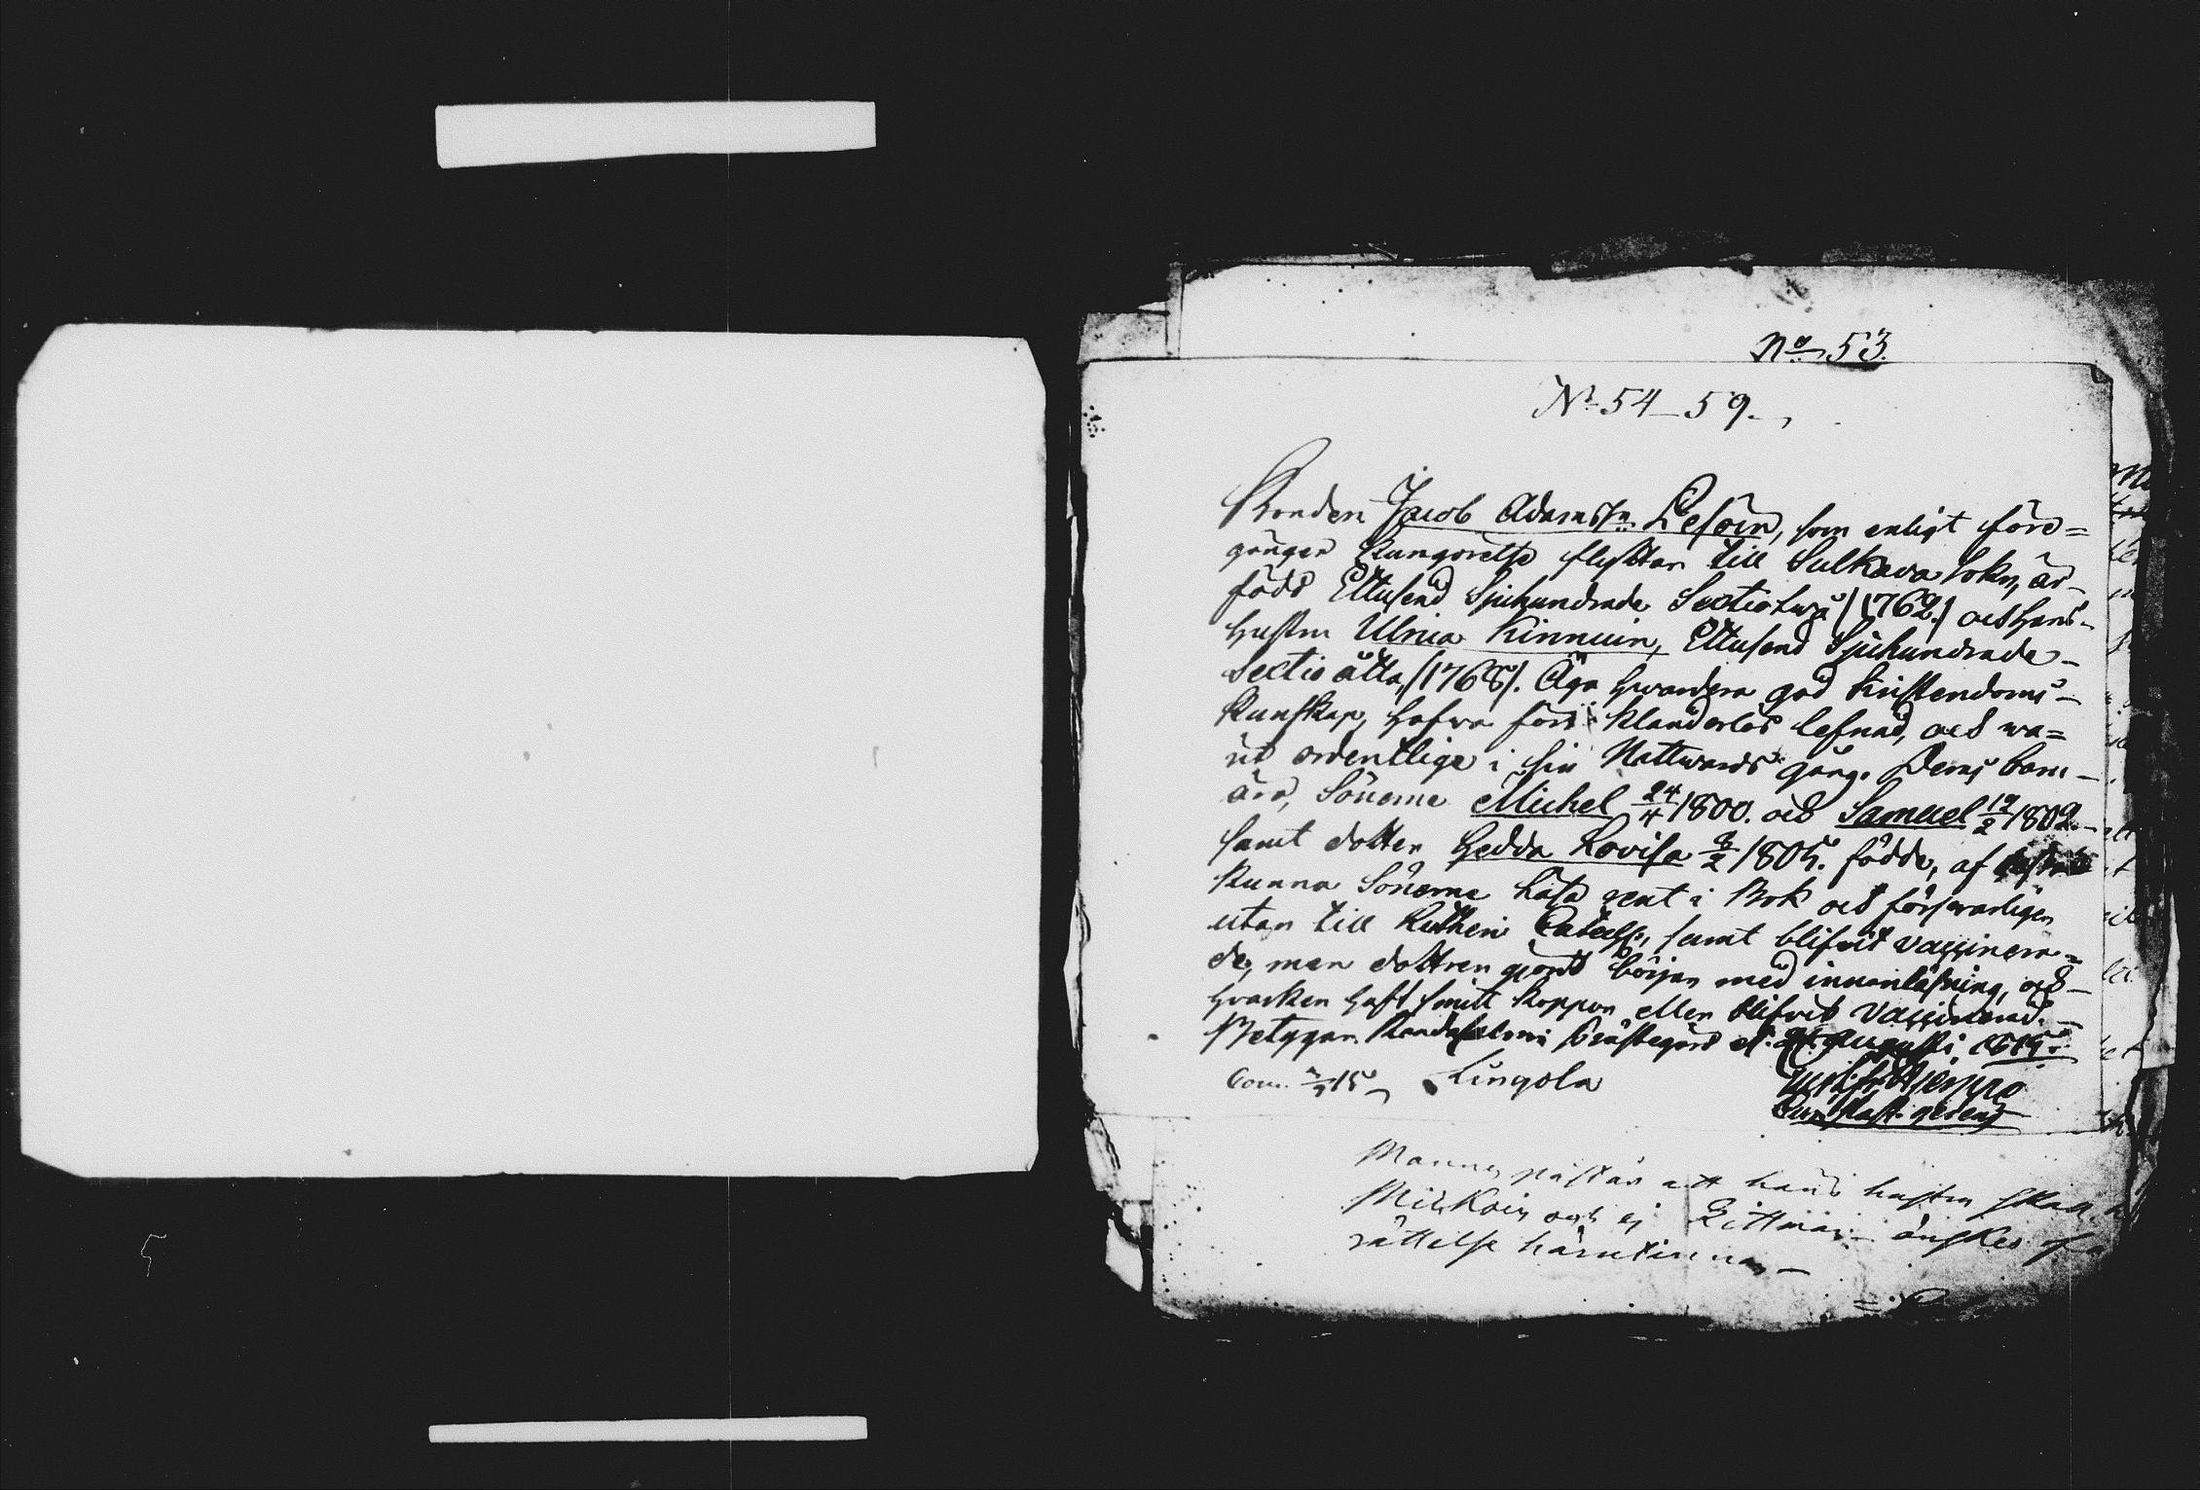 No 53.
No 54–59.
Bonden Jacob Adamss:n Lesoin, som enligt före=
gången Kungörelse flyttar till Sulkava Sokn, är
född Ettusend Sjuhundrade Sextiotwå (1762.) och hans
hustru Ulrica Kinnuin, Ettusend Sjuhundrade
sextio åtta, (1768). Äga hwardera god kristendoms
kunskap, hafwa fört klanderlös lefnad, och wa=
rit ordentlige i sin Nattwards gång. Deras barn
äro, Sönerne Michel 24/4 1800. och Samuel 19/2 1802.
samt dotter Hedda Lovisa 8/2 1805. födde, af
kunna Sönerne läsa rent i Bok och försvarligen
utan till Lutheri Cateches, samt blifvit vaccinera=
de, men dottren gjordt början med innanläsning, och
hvarken haft smitt koppor eller blifvit Vaccinerad.
Betygar. Randasalmi Prästegård d. Augusti 1815.
Com. 15 Lingola
Mannen påstår att hans hustru skall
och ej önskes
rättelse härutinnan
5